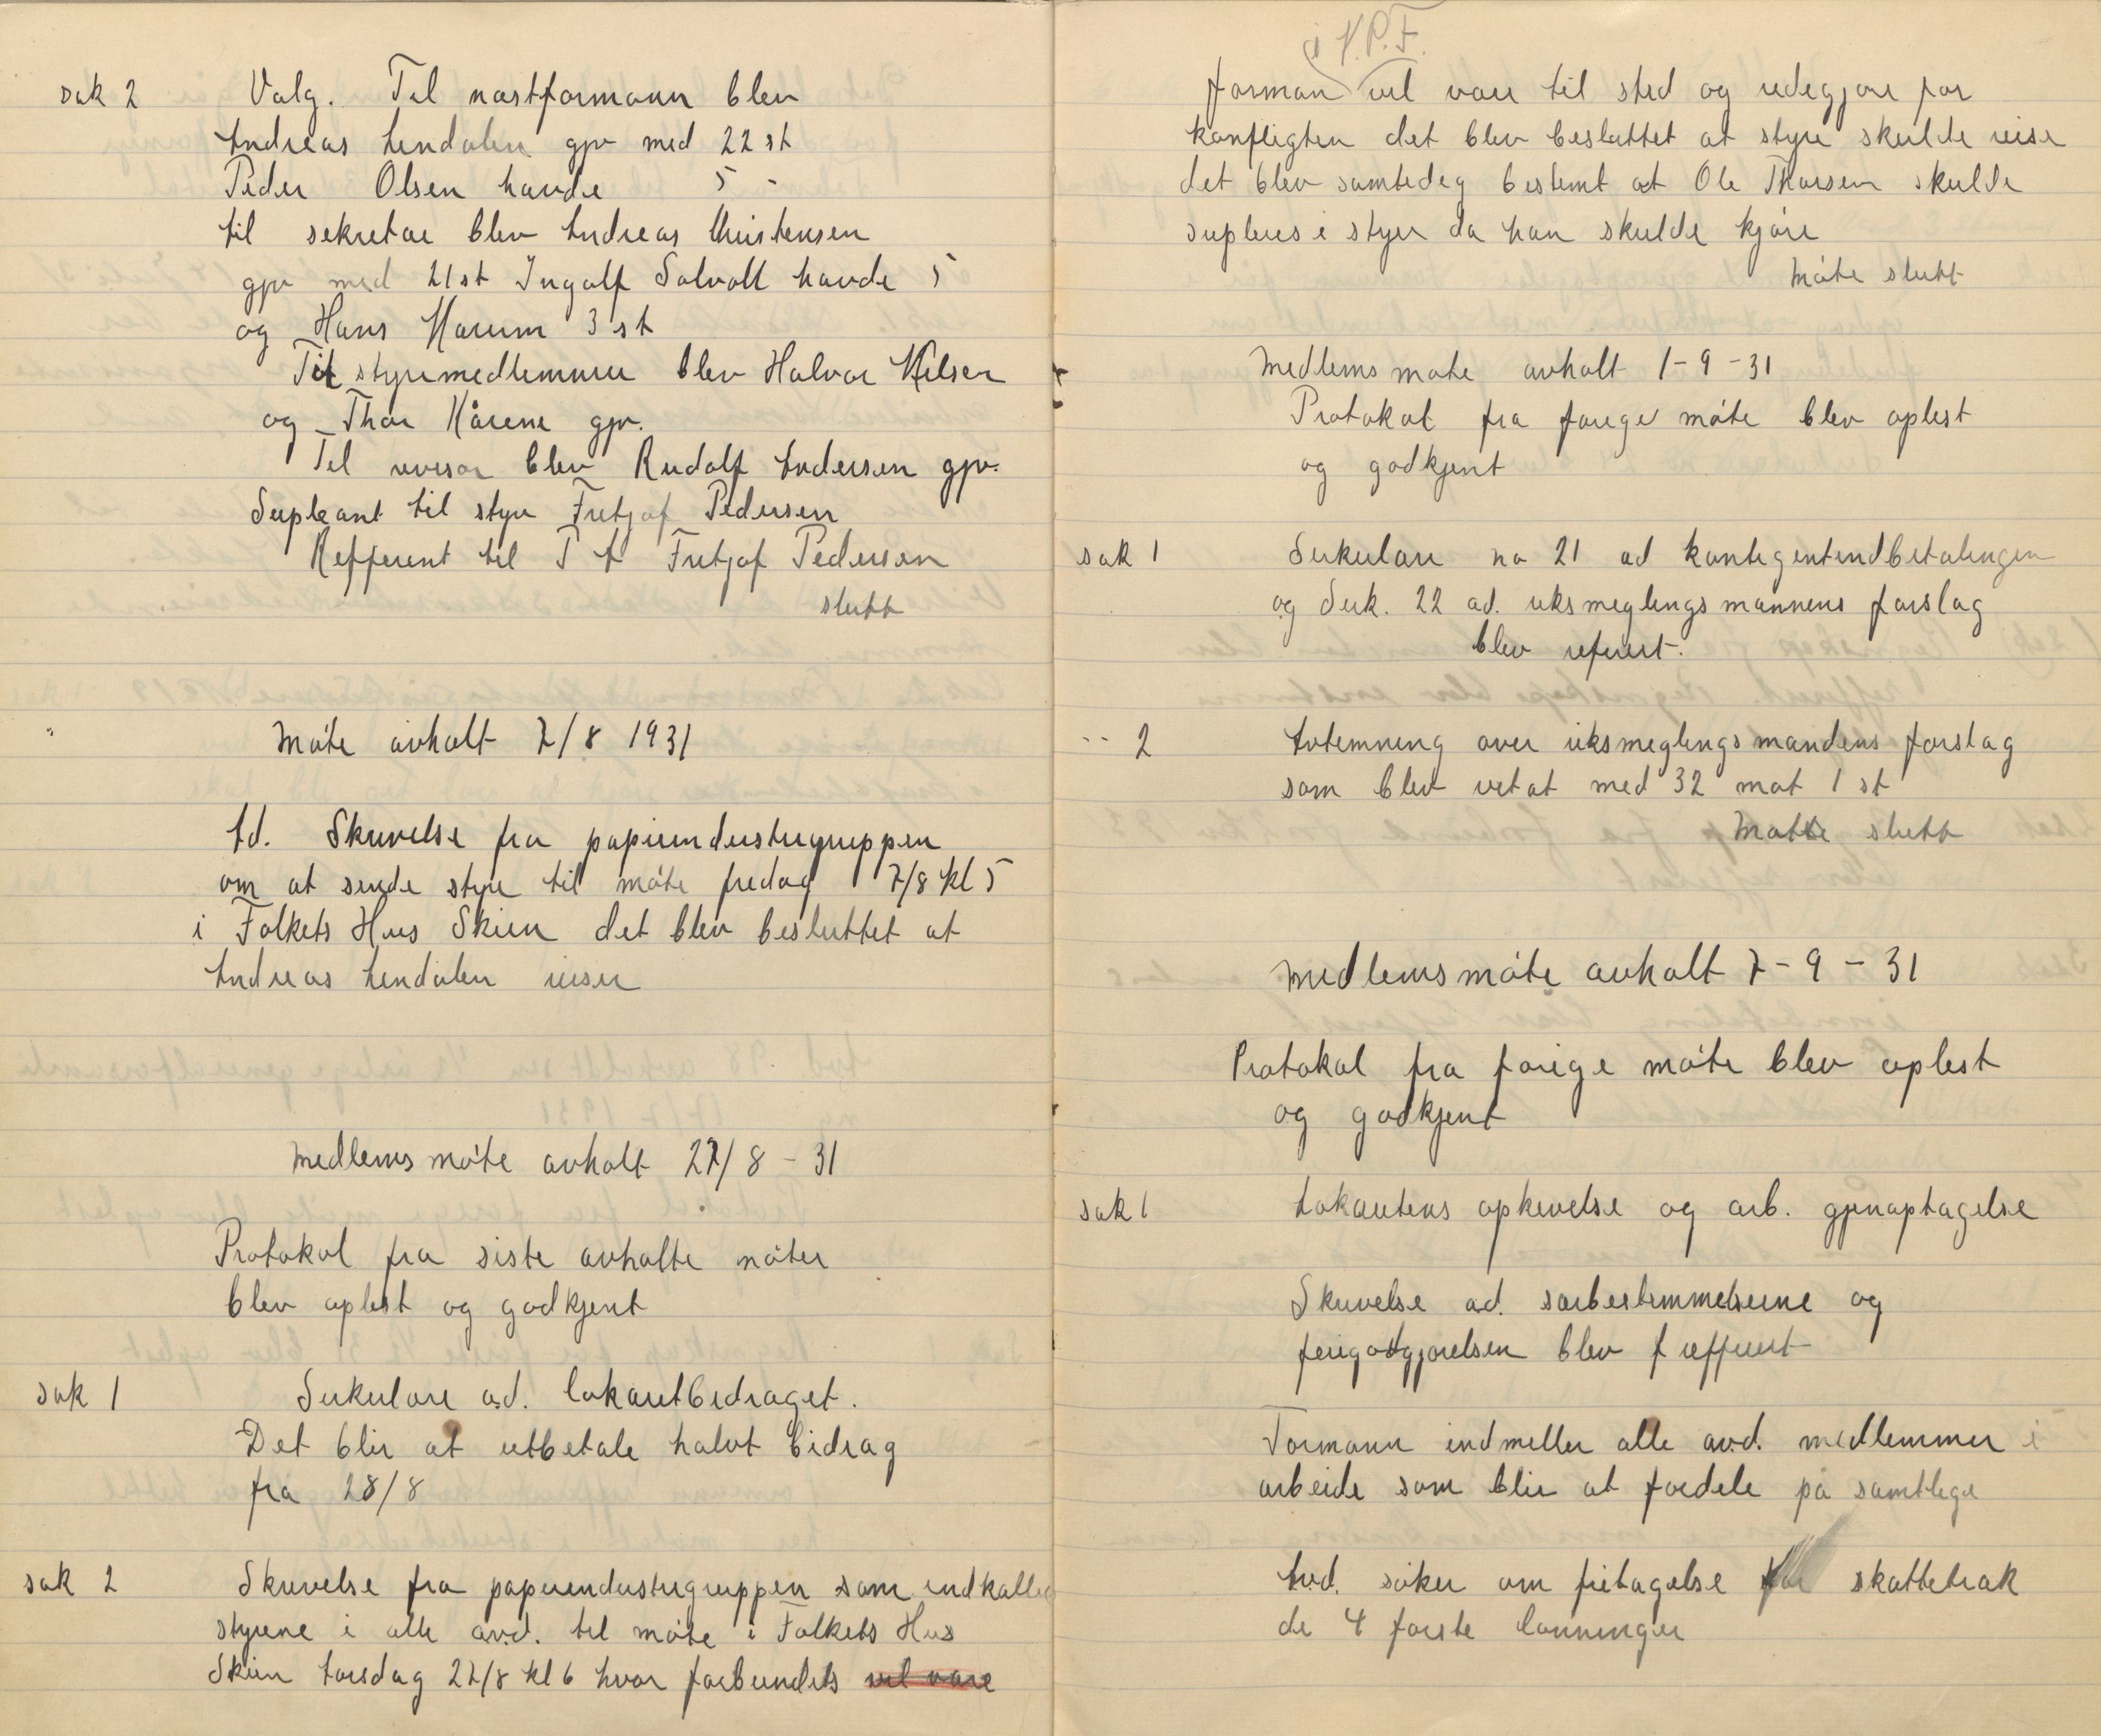 sak 2 Valg. Til næstformann blev
Andreas Lindalen gjv med 22 st
Peder Olsen havde 5 -
til sekretær blev Andreas Christensen
gjv med 21 st Ingolf Solvoll havde 5
og Hans Marum 3 st
Til styremedlemmer blev Halvor Nilsen
og Thor Kårene gjv.
Til revisor blev Rudolf Andersen gjv.
Supleant til styre Fritjof Pedersen
Refferent til T A Fritjof Pedersen
slutt
Møte avholt 7/8 1931
Ad. Skrivelse fra papirindustrigruppen
om at sende styre til møte fredag 7/8 kl 5
i Folkets Hus Skien det blev besluttet at
Andreas Lindalen reiser
Medlemsmøte avholt 27/8 - 31
Protokol fra siste avholte møter
blev oplest og godkjent
sak 1 Sirkulære ad. lokautbidraget.
Det blir at utbetale halvt bidrag
fra 28/8
sak 2 Skrivelse fra papirindustrigruppen som indkaller
styrene i alle avd. til møte i Folkets Hus
Skien torsdag 27/8 kl 6 hvor forbundets vil være
i N.P.F.
forman vil være til sted og redegjøre for
konfligten det blev besluttet at styre skulde reise
det blev samtedig bestemt at Ole Thorsen skulde
supleres i styre da han skulde kjøre
Møte slutt
Medlems møte avholt 1-9-31
Protokol fra forige møte blev oplest
og godkjent
sak 1 Sirkulære no 21 ad kontigentindbetalingen
og Sirk. 22 ad. riksmeglingsmannens forslag
blev referert.
-- 2 Avtemning over riksmeglingsmandens forslag
som blev vetat med 32 mot 1 st
Møtte slutt
Medlemsmøte avholt 7-9-31
Protokol fra forige møte blev oplest
og godkjent
sak 1 Lokautens ophevelse og arb. gjenoptagelse
Skrivelse ad. særbestemmelserne og
feriegodgjørelsen blev f refferert
Formann indmeller alle avd. medlemmer i
arbeide som blir at fordele på samtlige
Avd. søker om fritagelse for skattetræk
de 4 første lønninger